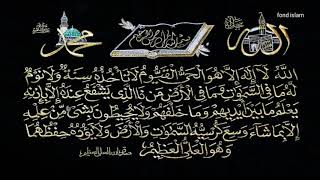 fond islam
الله
محمد
اَللّٰهُ لَا اِلٰهَ اِلَّا هُوَ الْحَيُّ الْقَيُّومُ لَا تَأْخُذُهُ سِنَةٌ وَلَا نَوْمٌ
لَهُ مَا فِي السَّمٰوَاتِ وَمَا فِي الْاَرْضِ مَنْ ذَا الَّذِي يَشْفَعُ عِنْدَهُ اِلَّا بِاِذْنِهِ
يَعْلَمُ مَا بَيْنَ اَيْدِيهِمْ وَمَا خَلْفَهُمْ وَلَا يُحِيطُونَ بِشَيْءٍ مِنْ عِلْمِهِ
اِلَّا بِمَا شَاءَ وَسِعَ كُرْسِيُّهُ السَّمٰوَاتِ وَالْاَرْضَ وَلَا يَؤُدُهُ حِفْظُهُمَا
وَهُوَ الْعَلِيُّ الْعَظِيمُ